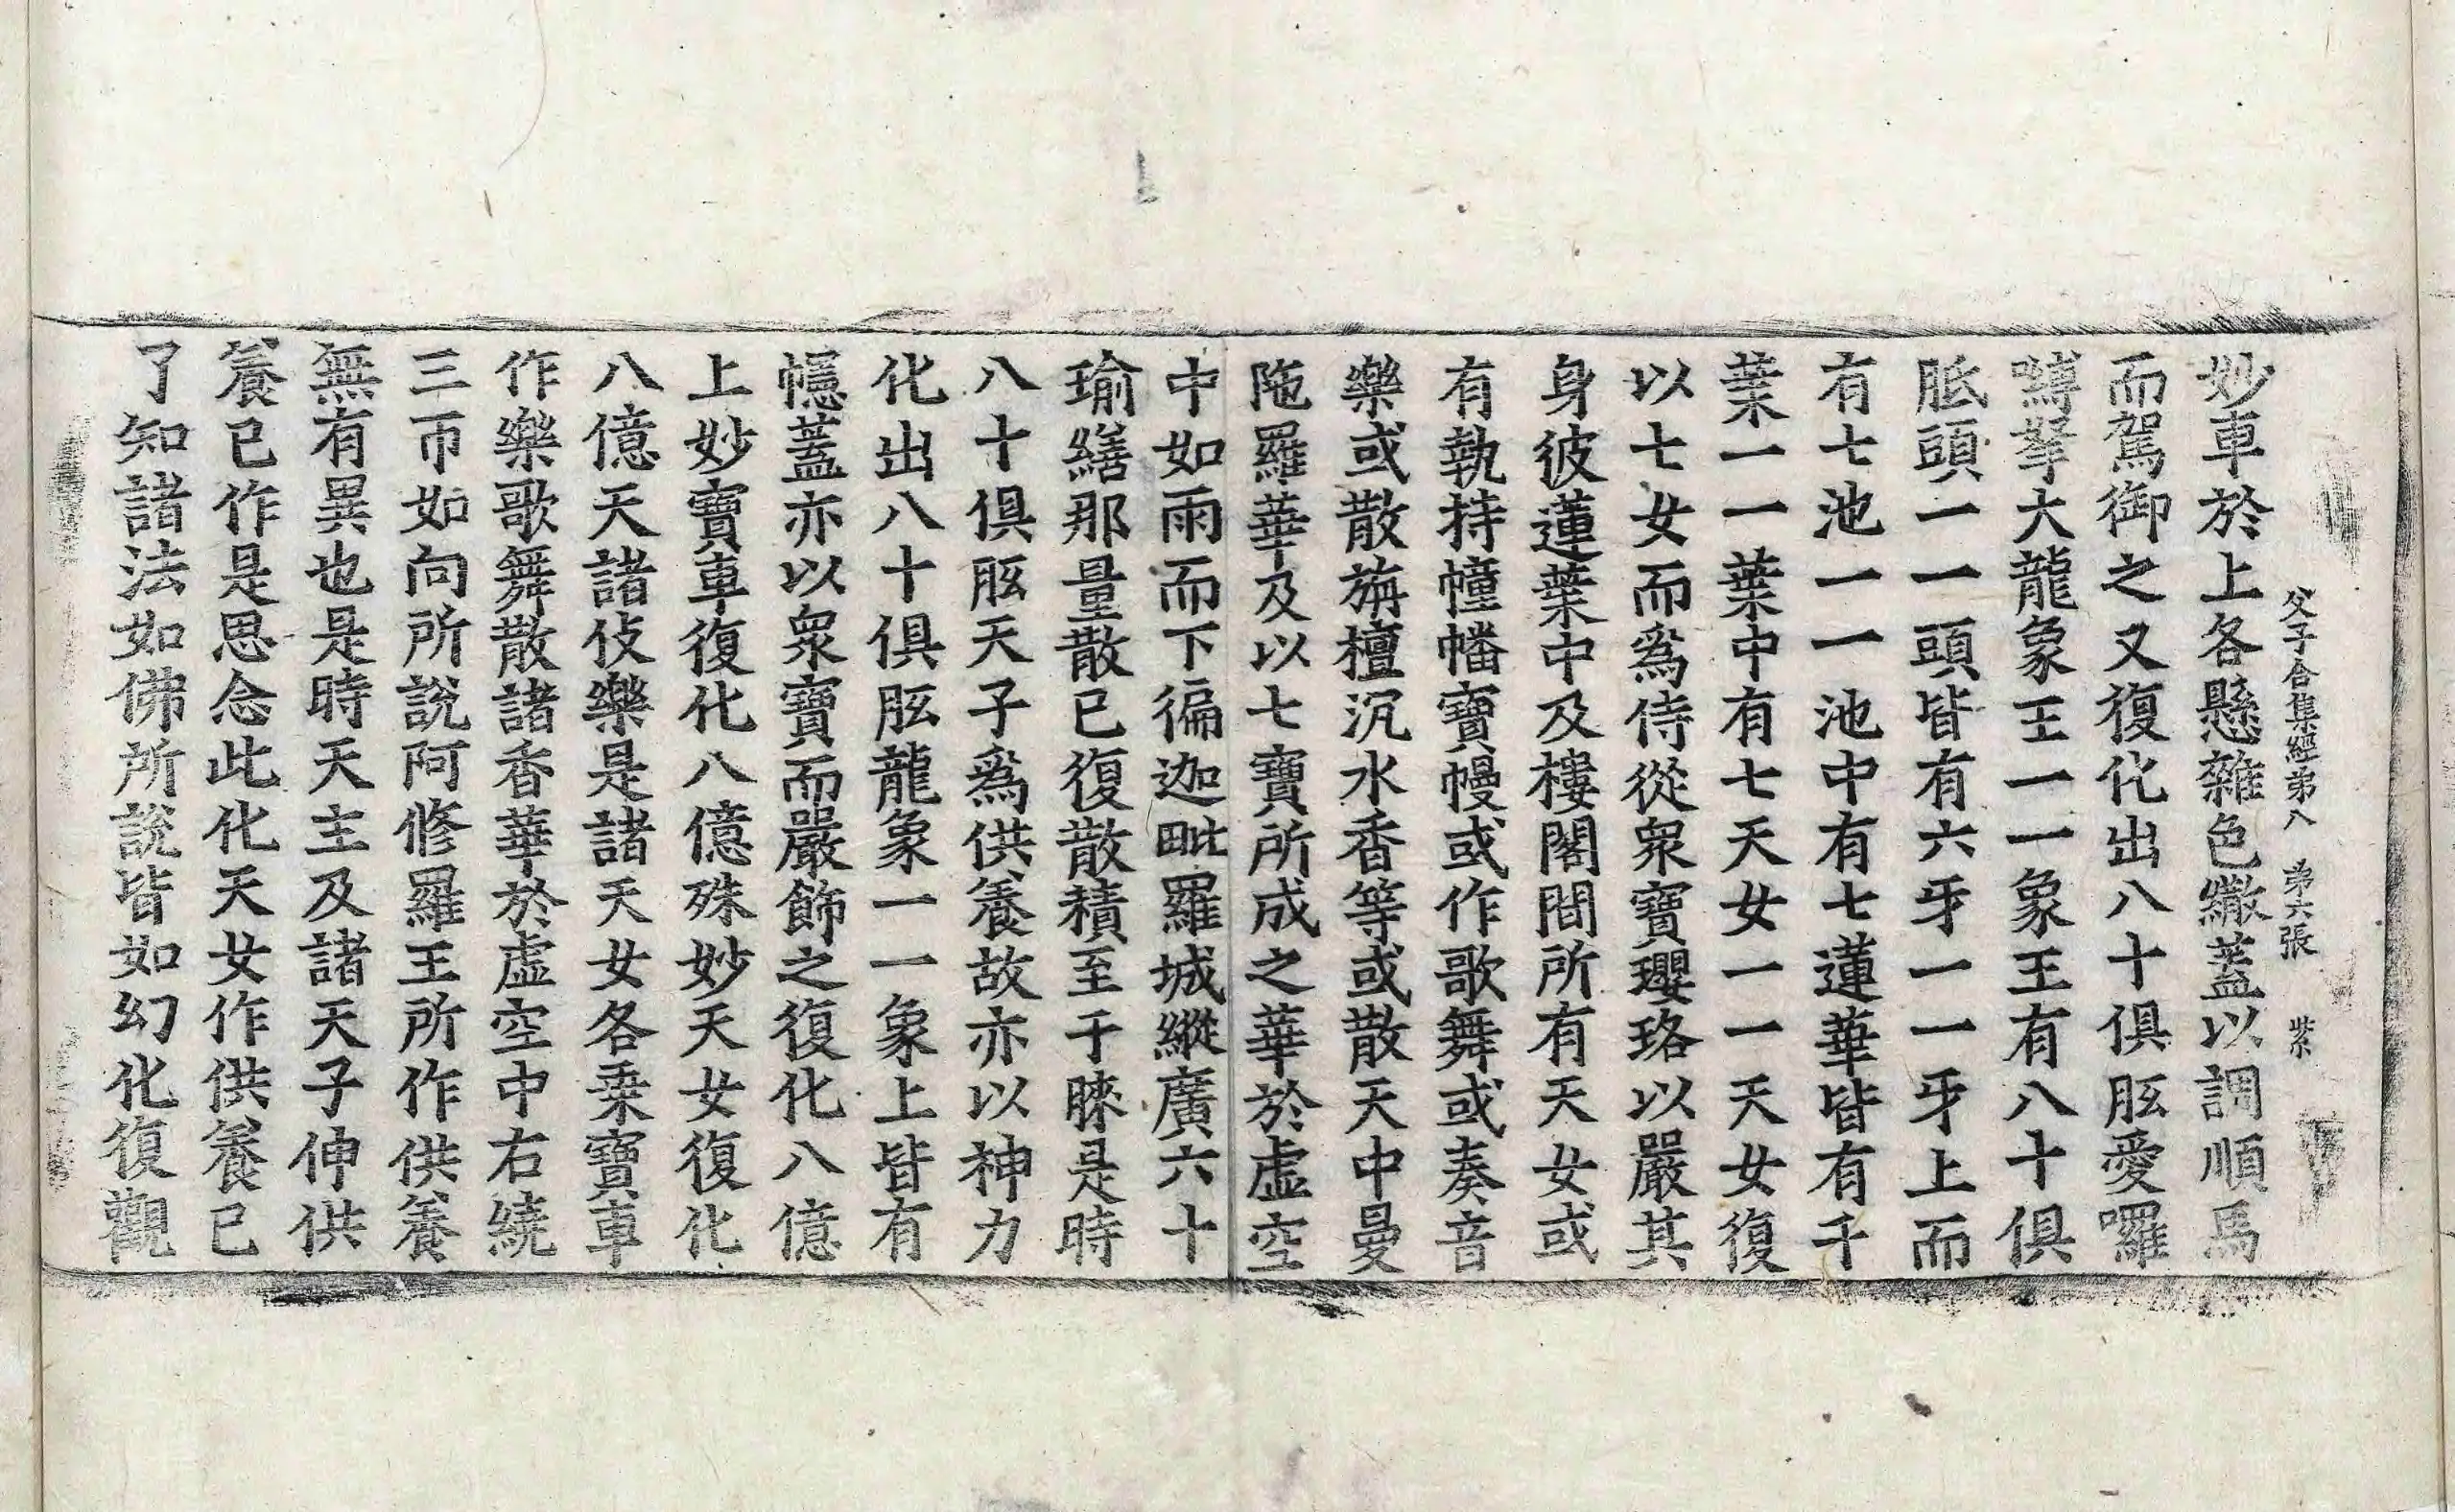 父子合集經第八 第六張 紫
妙車於上各懸雜色繖蓋以調順馬
而駕御之又復化出八十俱胝愛囉
嚩拏大龍象王一一象王有八十俱
胝頭一一頭皆有六牙一一牙上而
有七池一一池中有七蓮華皆有千
葉一一葉中有七天女一一天女復
以七女而爲侍從衆寶瓔珞以嚴其
身彼蓮葉中及樓閣間所有天女或
有執持幢幡寶幔或作歌舞或奏音
樂或散旃檀沉水香等或散天中曼
陁羅華及以七寶所成之華於虛空
中如雨而下徧迦毗羅城縱廣六十
瑜繕那量散已復散積至于睞是時
八十俱胝天子爲供養故亦以神力
化出八十俱胝龍象一一象上皆有
幰蓋亦以衆寶而嚴飾之復化八億
上妙寶車復化八億殊妙天女復化
八億天諸伎樂是諸天女各乗寶車
作樂歌舞散諸香華於虛空中右繞
三帀如向所說阿修羅王所作供養
無有異也是時天主及諸天子伸供
養已作是思念此化天女作供養已
了知諸法如佛所說皆如幻化復觀